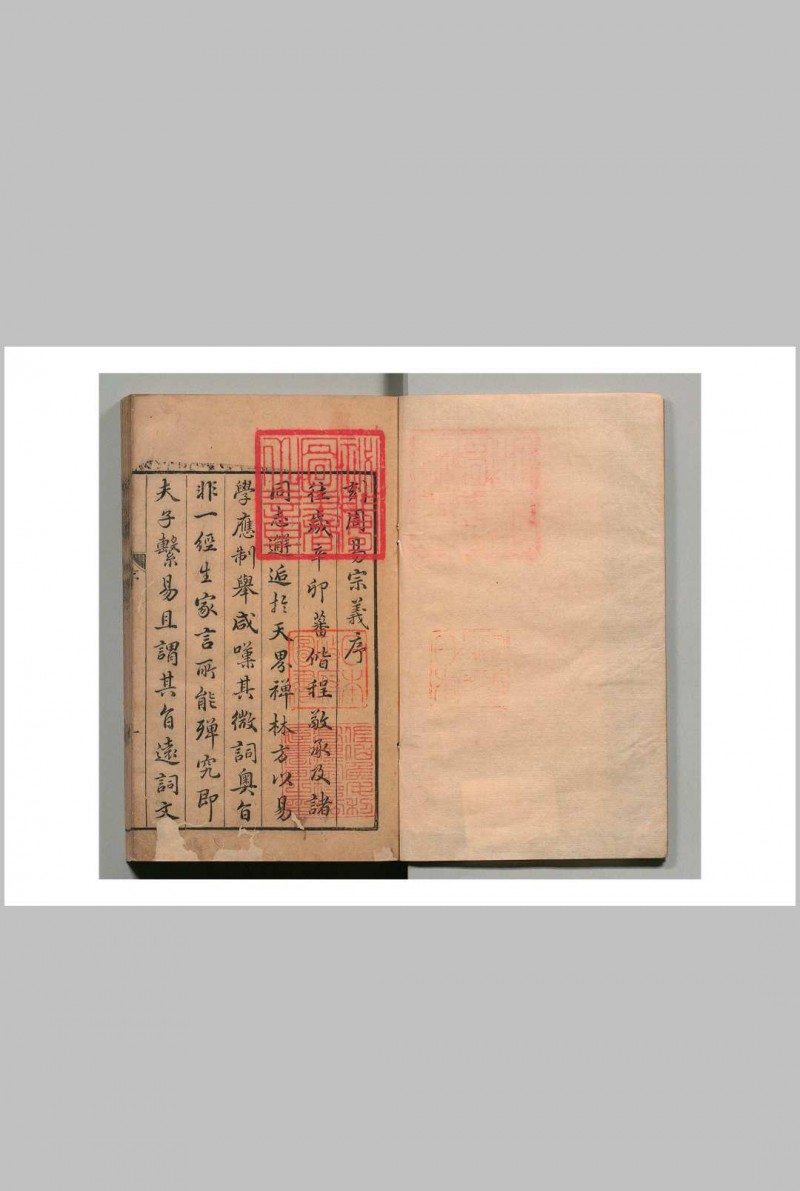 刻周易宗義序
往歲辛卯蕃偕程敬承及諸
同志邂逅於天界禅林方以易
學應制舉咸嘆其微詞奧旨
非一經生家言所能殫究即
夫子繫易且謂其旨遠詞文